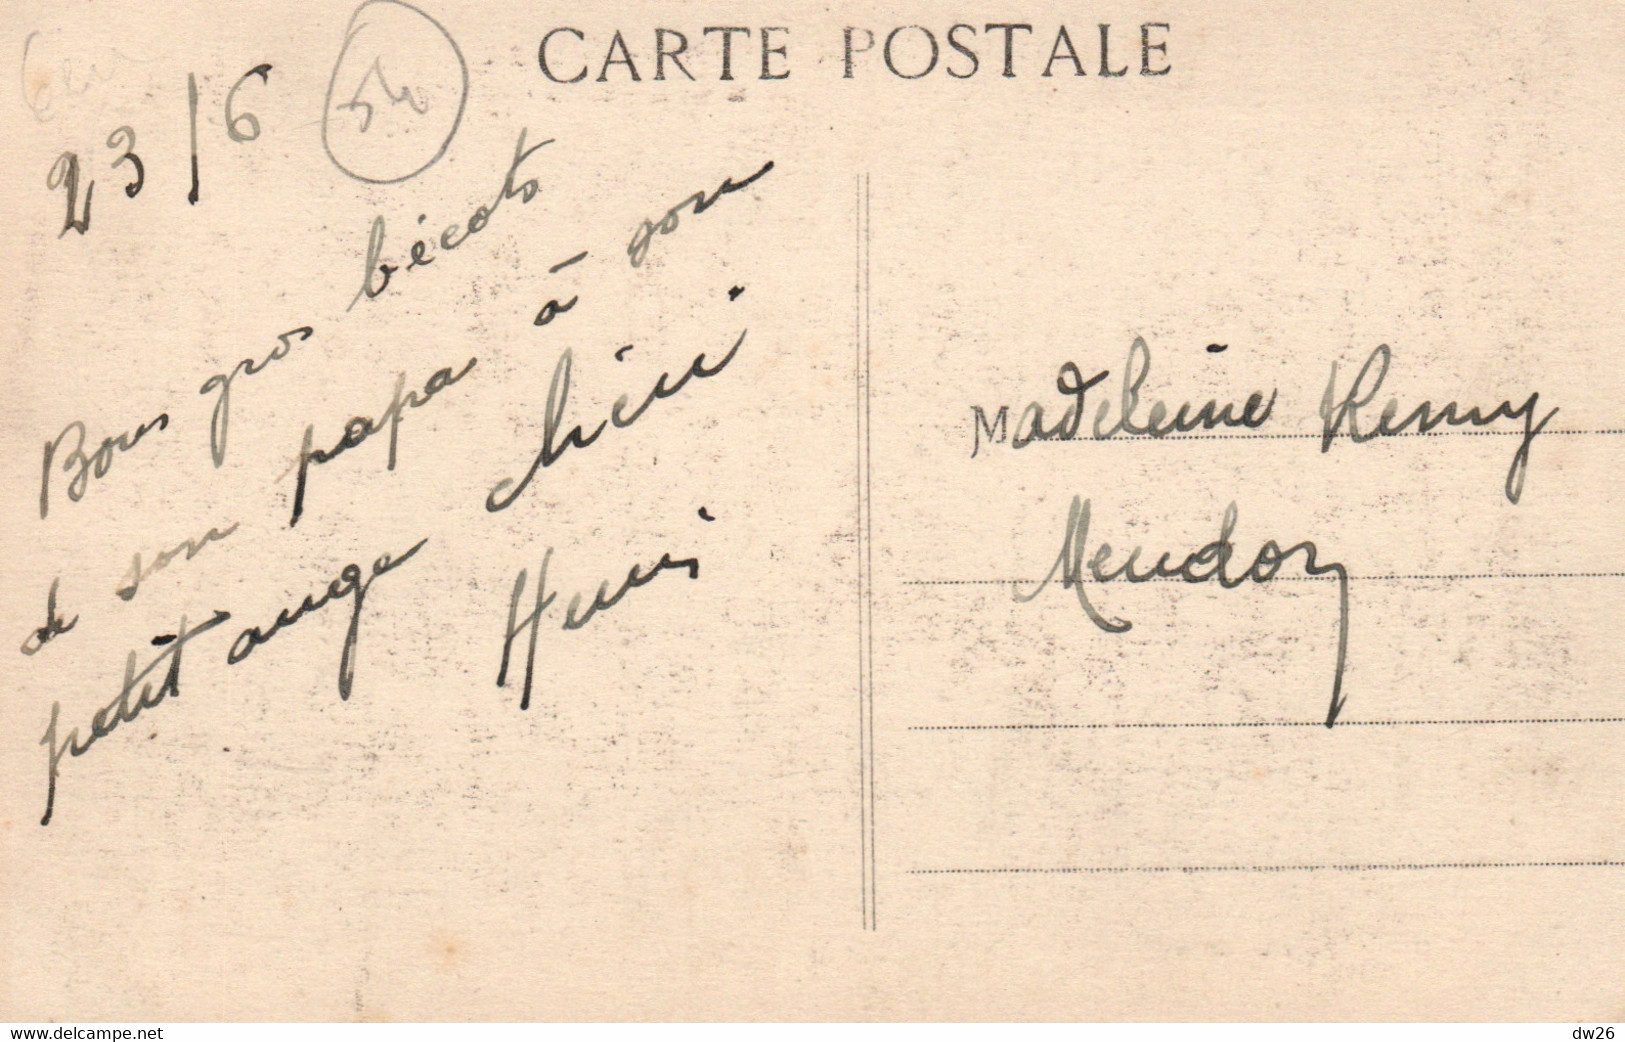 CARTE POSTALE
23/6
54
Bons gros bécots
de son papa à son
petit ange chéri
Henri
Madeleine Remy
Meudon
www.delcampe.net
dw26